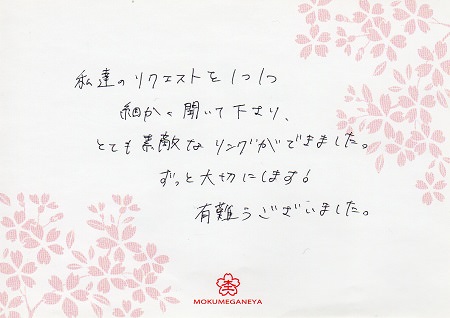 私達のリクエストを1つ1つ
細かく聞いて下さり、
とても素敵なリングができました。
ずっと大切にします!
有難うございました。
MOKUMEGANEYA